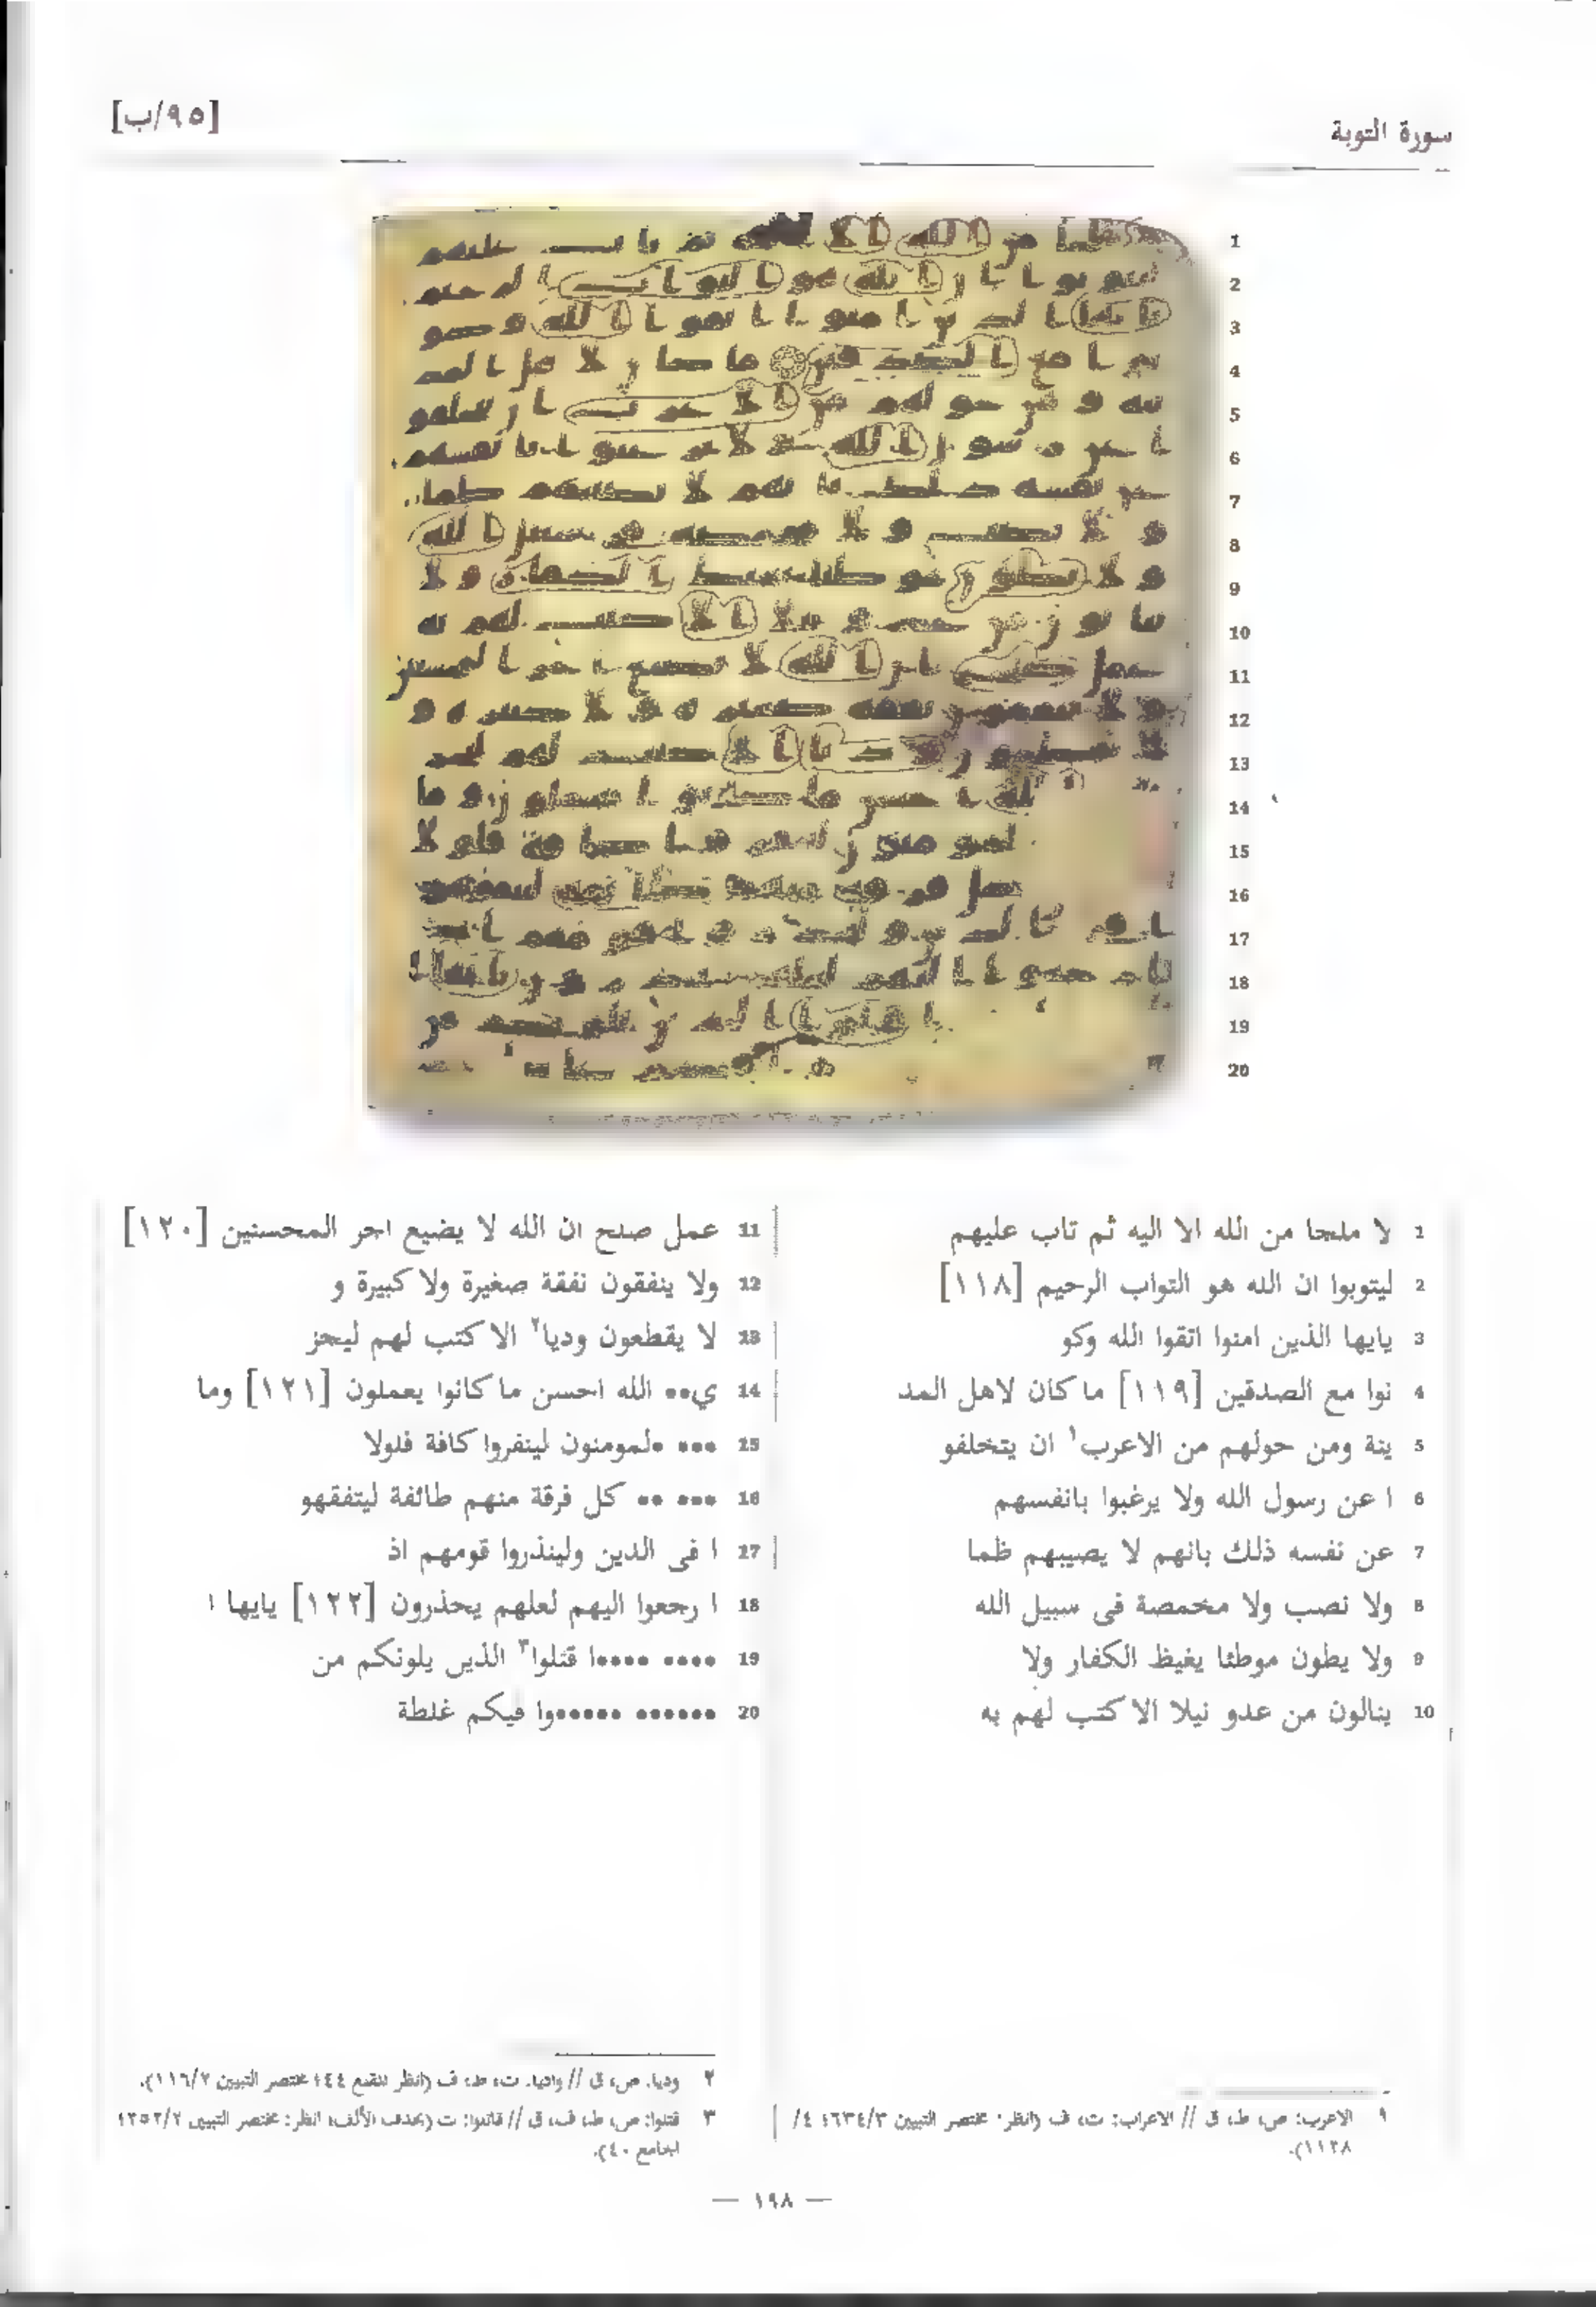 سورة التوبة
[٩٥/ب]
1
2
3
4
5
6
7
8
9
10
11
12
13
14
15
16
17
18
19
20
1 لا ملجا من الله الا اليه ثم تاب عليهم
2 ليتوبوا ان الله هو التواب الرحيم [١١٨]
3 يايها الذين امنوا اتقوا الله وكو
4 نوا مع الصدقين [١١٩] ما كان لاهل المد
5 ينة ومن حولهم من الاعرب١ ان يتخلفو
6 ا عن رسول الله ولا يرغبوا بانفسهم
7 عن نفسه ذلك بانهم لا يصيبهم ظما
8 ولا نصب ولا مخمصة فى سبيل الله
9 ولا يطون موطئا يغيظ الكفار ولا
10 ينالون من عدو نيلا الا كتب لهم به
11 عمل صلح ان الله لا يضيع اجر المحسنين [١٢٠]
12 ولا ينفقون نفقة صغيرة ولا كبيرة و
13 لا يقطعون وديا٢ الا كتب لهم ليجز
14 ي•• الله احسن ما كانوا يعملون [١٢١] وما
15 ••• •لمومنون لينفروا كافة فلولا
16 ••• •• كل فرقة منهم طائفة ليتفقهو
17 ا فى الدين ولينذروا قومهم اذ
18 ا رجعوا اليهم لعلهم يحذرون [١٢٢] يايها ا
19 •••• ••••ا قتلوا٣ الذين يلونكم من
20 •••••• ••••••وا فيكم غلظة
١ الاعرب: ص، ط، ق // الاعراب: ت، ف (انظر: مختصر التبيين ٦٣٤/٣؛ ٤/
١١٣٨).
٢ وديا. ص، ق // واديا. ت، ط، ف (انظر المقنع ٤٤؛ مختصر التبيين ١١٦/٢).
٣ قتلوا: ص، ط، ف، ق // قاتلوا: ت (بحذف الألف، انظر: مختصر التبيين ٢٥٢/٢؛
الجامع ٤٠).
— ١٩٨ —